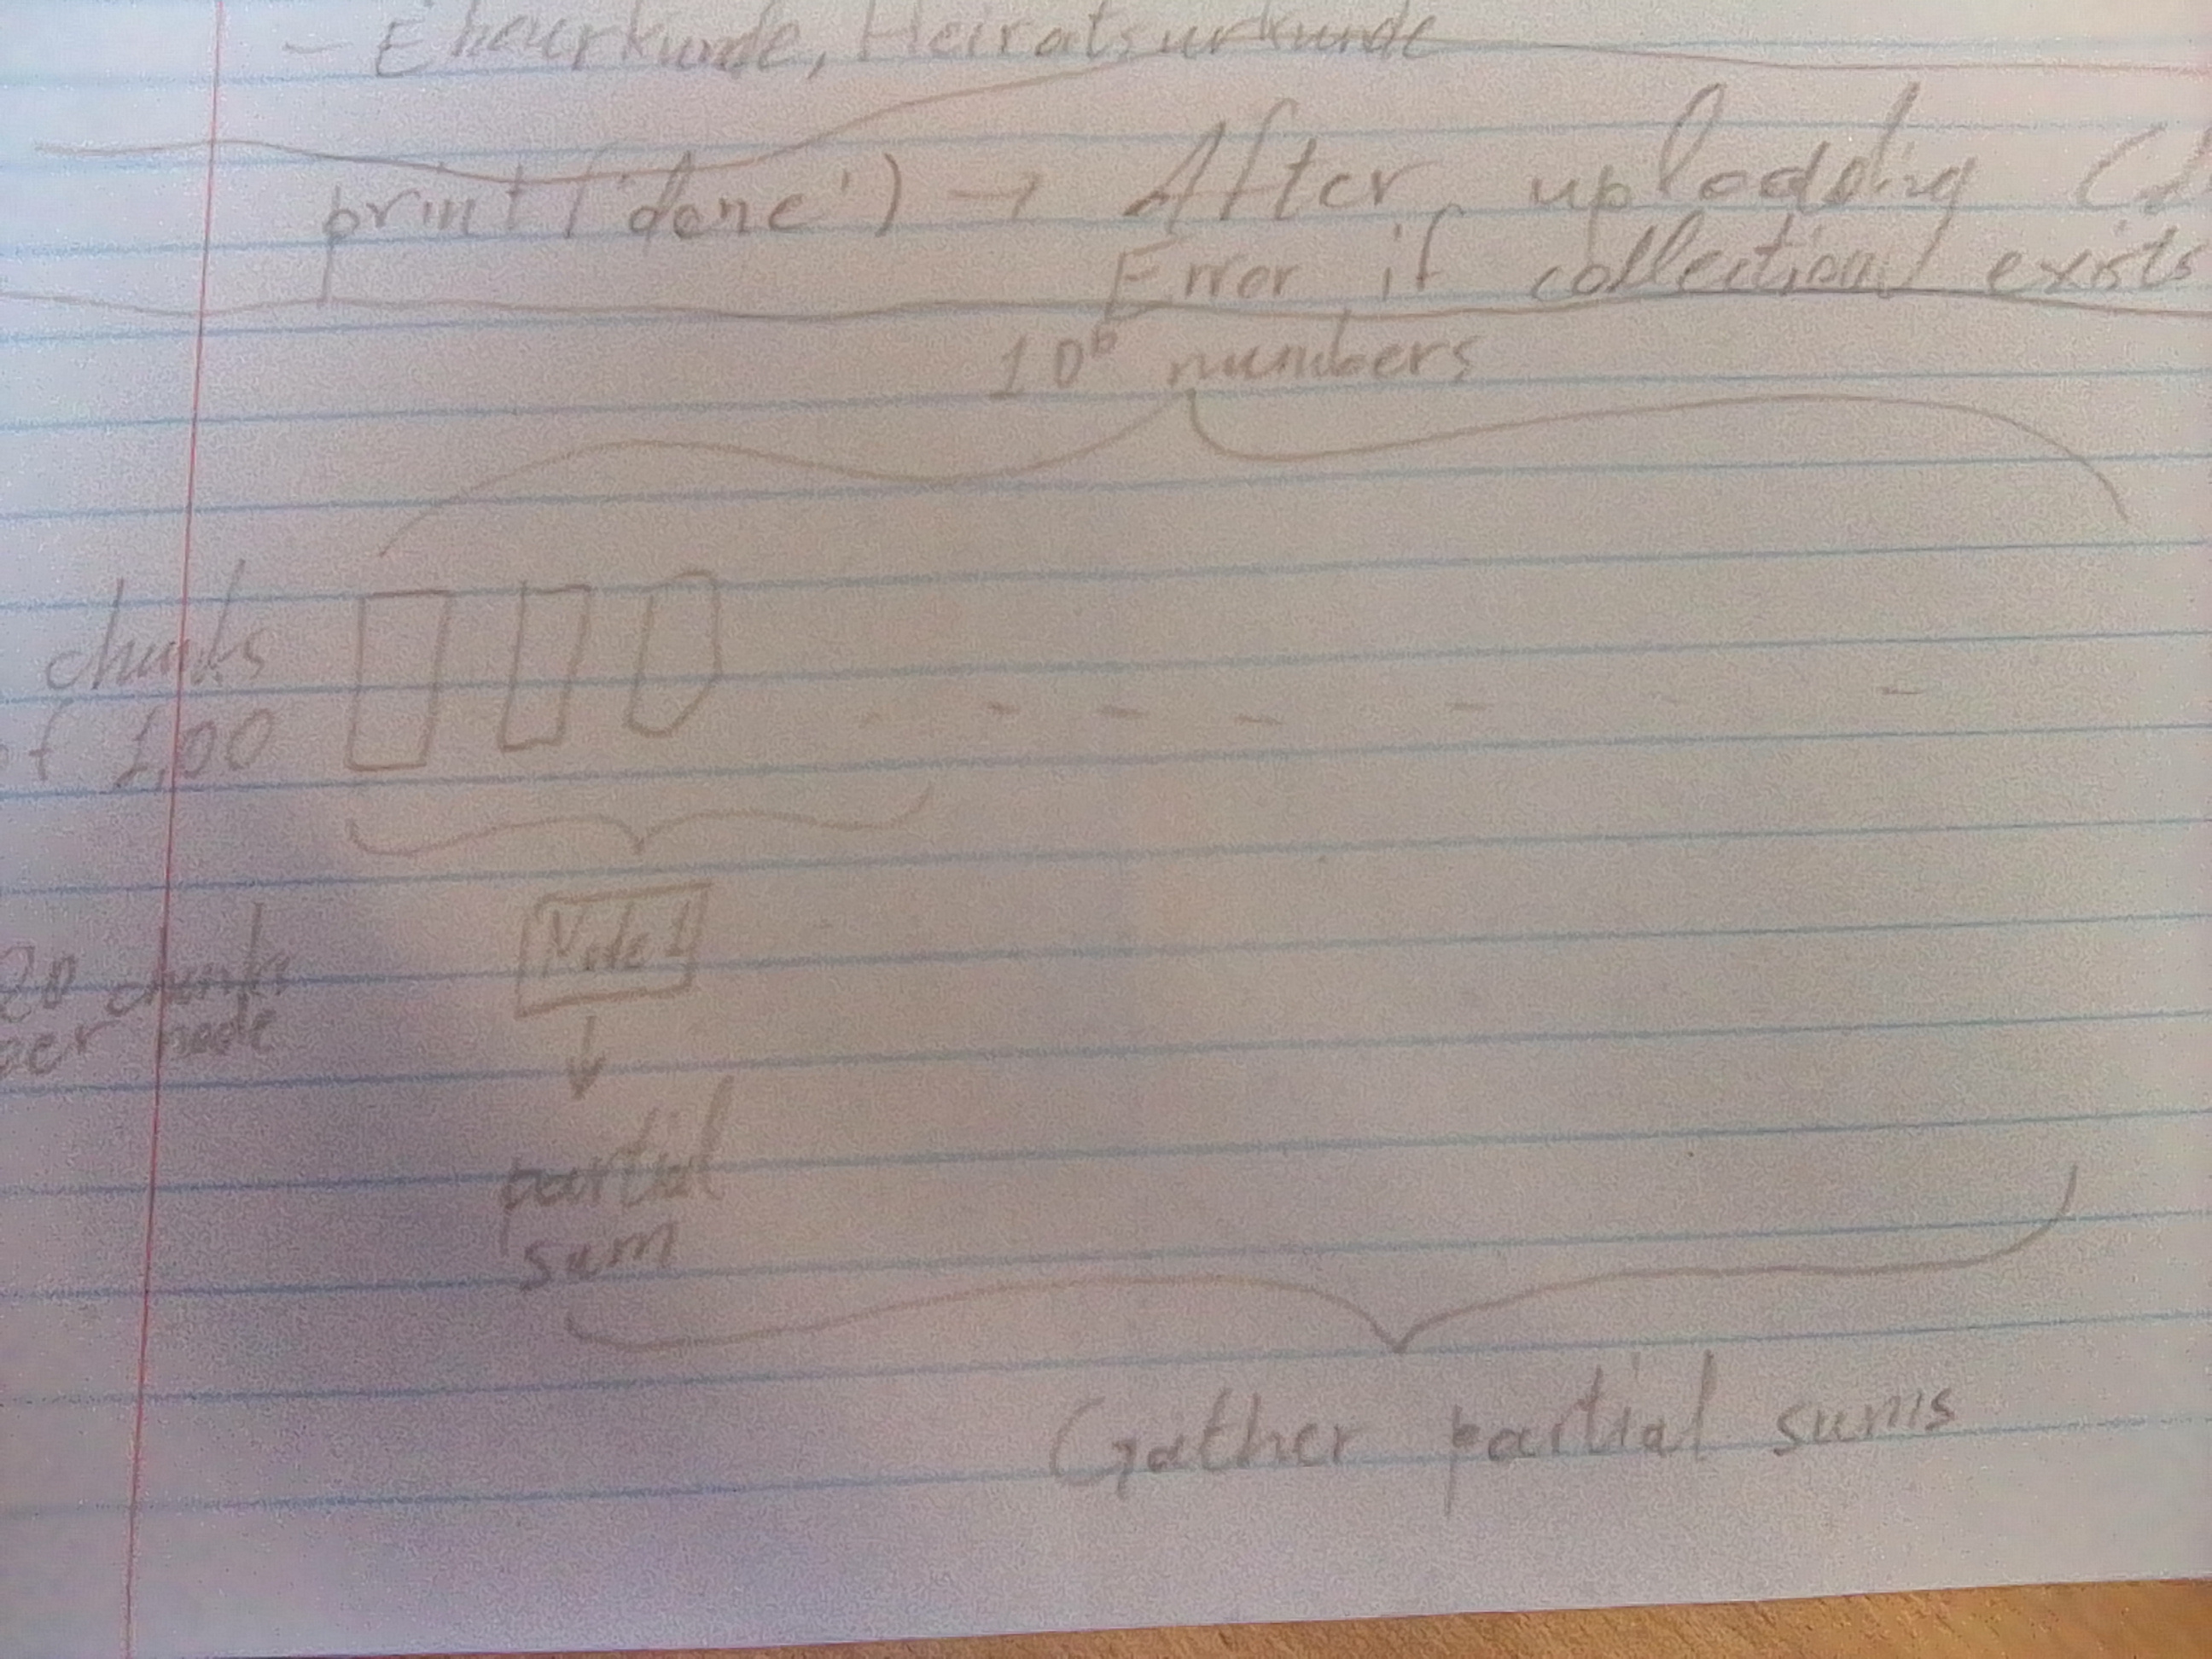 - Eheurkunde, Heiratsurkunde
print('done') → After uploading
Error if collection exists
10⁶ numbers
chunks
of 1,00
Node 1
20 chunks
per node
partial
sum
Gather partial sums